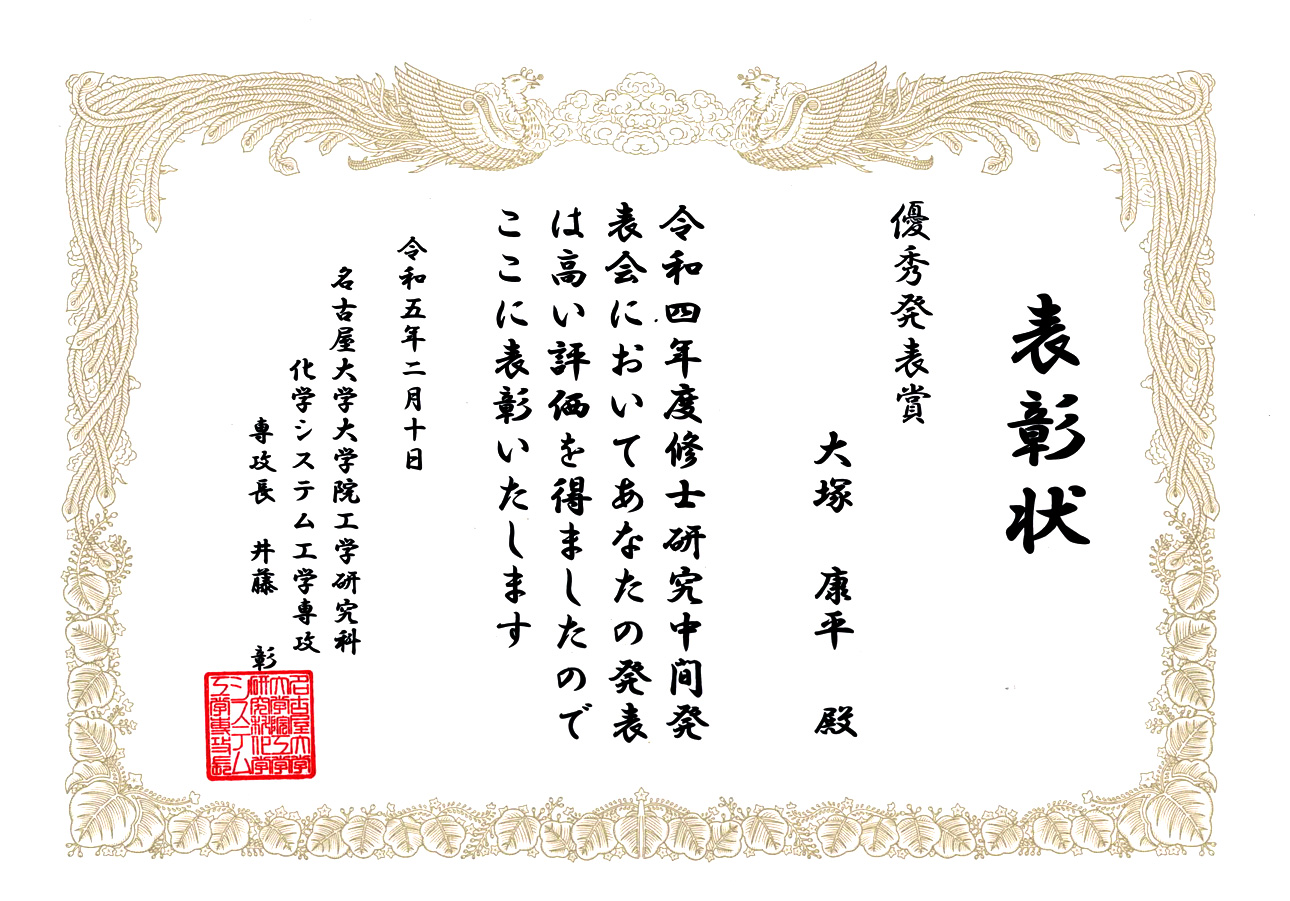 表彰状
優秀発表賞
大塚 康平 殿
令和四年度修士研究中間発
表会においてあなたの発表
は高い評価を得ましたので
ここに表彰いたします
令和五年二月十日
名古屋大学大学院工学研究科
化学システム工学専攻
専攻長 井藤 彰
名古屋大学
大学院工学
研究科化学
システム
工学専攻長